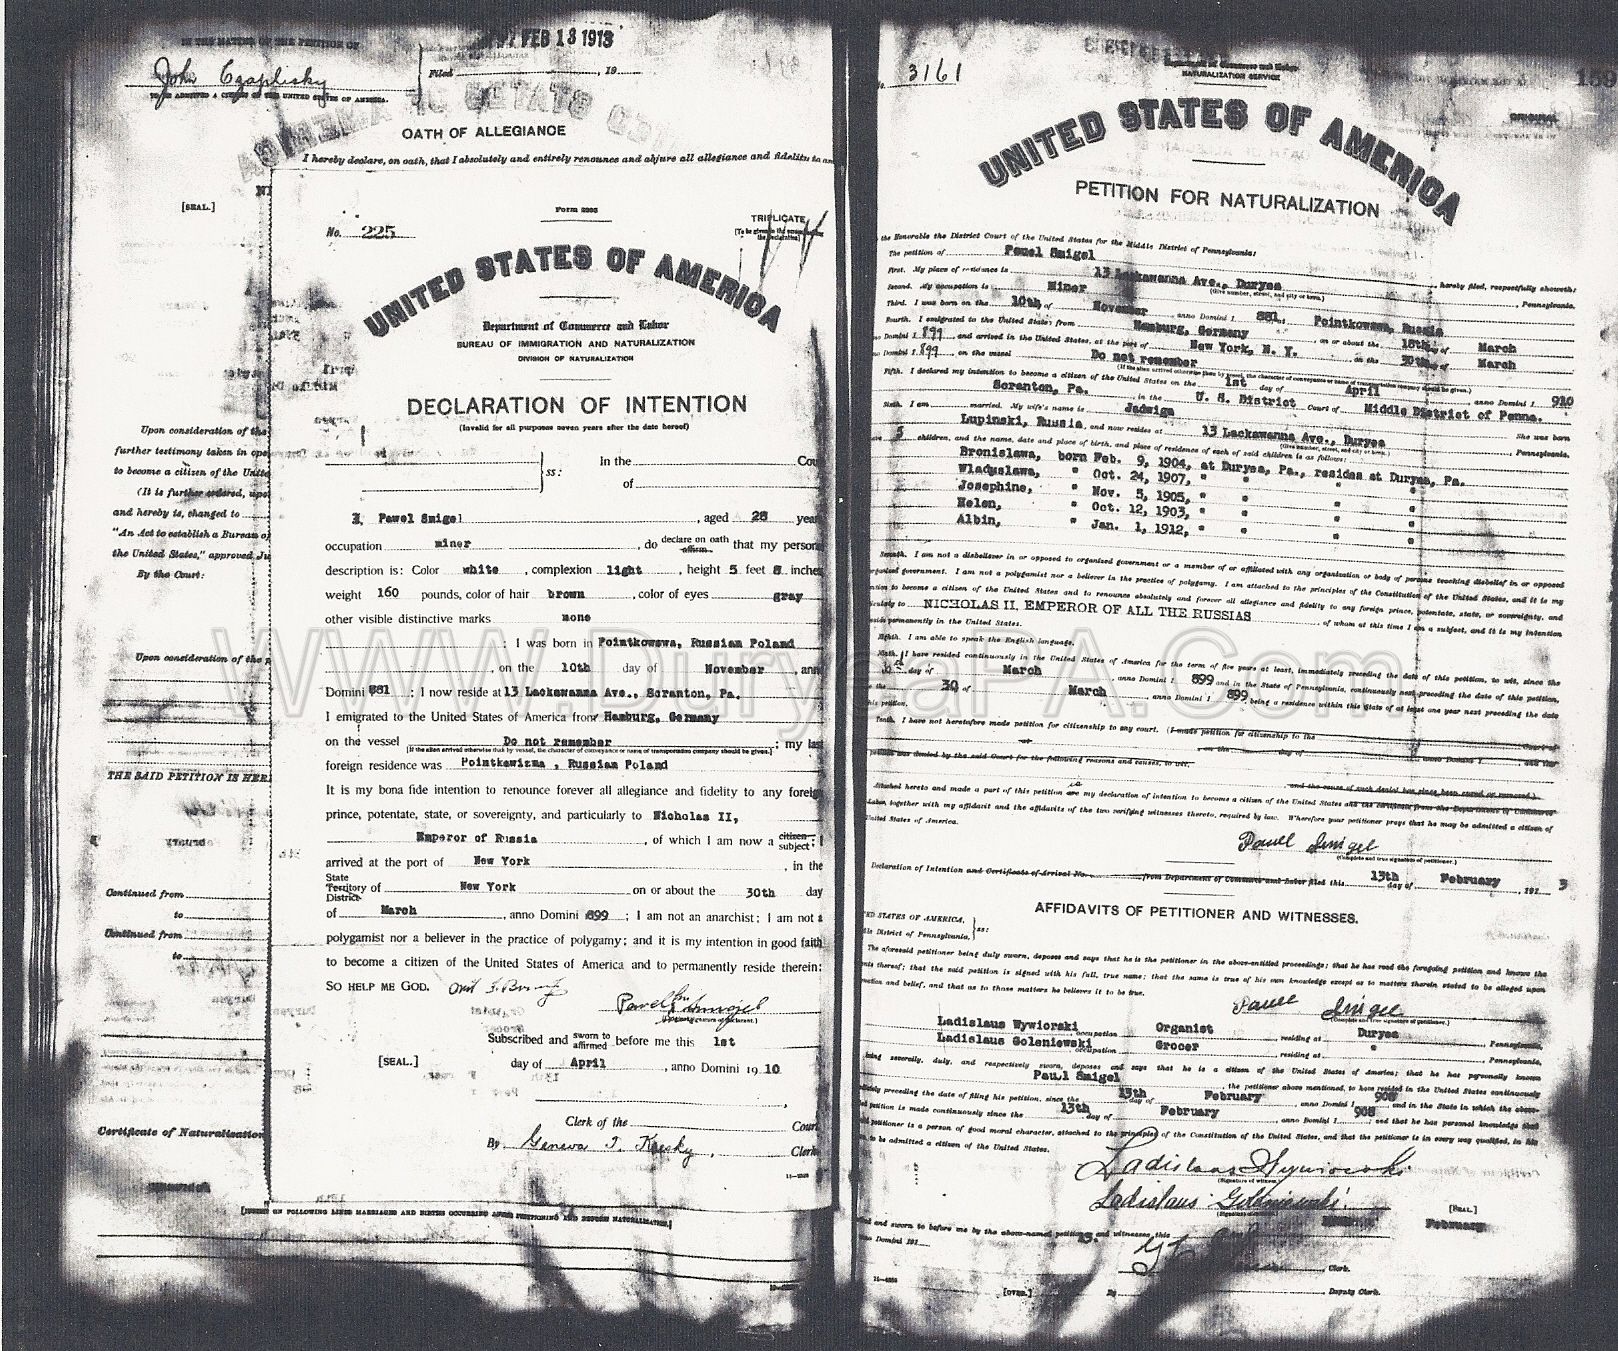 IN THE MATTER OF THE PETITION OF
John Czaplisky
TO BE ADMITTED A CITIZEN OF THE UNITED STATES OF AMERICA.
FEB 13 1913
Filed , 19
OATH OF ALLEGIANCE
I hereby declare, on oath, that I absolutely and entirely renounce and abjure all allegiance and fidelity to an
[SEAL.]
Upon consideration of the
further testimony taken in ope
to become a citizen of the Unite
(It is further ordered, upo
and hereby is, changed to
"An Act to establish a Bureau of
the United States," approved Ju
By the Court:
Upon consideration of the p
THE SAID PETITION IS HERE
Continued from
to
Continued from
to
Certificate of Naturalization
[INSERT ON FOLLOWING LINES MARRIAGES AND BIRTHS OCCURRING AFTER PETITIONING AND BEFORE NATURALIZATION.]
Form 2203
No. 225
TRIPLICATE
[To be given to the
UNITED STATES OF AMERICA
Department of Commerce and Labor
BUREAU OF IMMIGRATION AND NATURALIZATION
DIVISION OF NATURALIZATION
DECLARATION OF INTENTION
(Invalid for all purposes seven years after the date hereof)
ss: In the Cou
of
I, Pawel Smigel , aged 28 year
occupation miner , do declare on oath affirm that my person
description is: Color white , complexion light , height 5 feet 8 inches
weight 160 pounds, color of hair brown , color of eyes gray
other visible distinctive marks none
; I was born in Pointkowswa, Russian Poland
, on the 10th day of November , ann
Domini 881 ; I now reside at 13 Lackawanna Ave., Scranton, Pa.
I emigrated to the United States of America from Hamburg, Germany
on the vessel Do not remember ; my last
(If the alien arrived otherwise than by vessel, the character of conveyance or name of transportation company should be given.)
foreign residence was Pointkawizma , Russian Poland
It is my bona fide intention to renounce forever all allegiance and fidelity to any foreig
prince, potentate, state, or sovereignty, and particularly to Nicholas II,
Emperor of Russia , of which I am now a citizen subject; I
arrived at the port of New York , in the
State Territory District of New York on or about the 30th day
of March , anno Domini 899 ; I am not an anarchist; I am not a
polygamist nor a believer in the practice of polygamy; and it is my intention in good faith
to become a citizen of the United States of America and to permanently reside therein:
SO HELP ME GOD.
Subscribed and sworn to affirmed before me this 1st
[SEAL.] day of April , anno Domini 19 10
Clerk of the Court
By Geneva T. Kresky, Clerk
3161
Department of Commerce and Labor
NATURALIZATION SERVICE
159
ORIGINAL
UNITED STATES OF AMERICA
PETITION FOR NATURALIZATION
the Honorable the District Court of the United States for the Middle District of Pennsylvania:
The petition of Pauel Smigel , hereby filed, respectfully showeth:
First. My place of residence is 13 Lackawanna Ave., Duryea , Pennsylvania.
(Give number, street, and city or town.)
Second. My occupation is Miner
Third. I was born on the 10th of November anno Domini 1 881, at Pointkowswa, Russia
Fourth. I emigrated to the United States from Hamburg, Germany , on or about the 18th day of March
no Domini 1 899 , and arrived in the United States, at the port of New York, N. Y. on the 30th day of March
no Domini 1 899 , on the vessel Do not remember
(If the alien arrived otherwise than by vessel, the character of conveyance or name of transportation company should be given.)
Fifth. I declared my intention to become a citizen of the United States on the 1st day of April , anno Domini 1 910
Scranton, Pa. , in the U. S. District Court of Middle District of Penna.
Sixth. I am married. My wife's name is Jadwiga She was born
Lupinski, Russia and now resides at 13 Lackawanna Ave., Duryea , Pennsylvania.
(Give number, street, and city or town.)
5 children, and the name, date and place of birth, and place of residence of each of said children is as follows:
Bronislawa, born Feb. 9, 1904, at Duryea, Pa., resides at Duryea, Pa.
Wladyslawa, " Oct. 24, 1907, " " "
Josephine, " Nov. 5, 1905, " " "
Helen, " Oct. 12, 1903, " " "
Albin, " Jan. 1, 1912, " " "
Seventh. I am not a disbeliever in or opposed to organized government or a member of or affiliated with any organization or body of persons teaching disbelief in or opposed
organized government. I am not a polygamist nor a believer in the practice of polygamy. I am attached to the principles of the Constitution of the United States, and it is my
intention to become a citizen of the United States and to renounce absolutely and forever all allegiance and fidelity to any foreign prince, potentate, state, or sovereignty, and
cularly to NICHOLAS II, EMPEROR OF ALL THE RUSSIAS , of whom at this time I am a subject, and it is my intention
reside permanently in the United States.
Eighth. I am able to speak the English language.
Ninth. I have resided continuously in the United States of America for the term of five years at least, immediately preceding the date of this petition, to wit, since the
30 day of March , anno Domini 1 899 and in the State of Pennsylvania, continuously next preceding the date of this petition,
the 30 of March , anno Domini 1 899 being a residence within this State of at least one year next preceding the date
this petition.
Tenth. I have not heretofore made petition for citizenship to any court. (I made petition for citizenship to the Court of
at on the day of , anno Domini 1 , and the
petition was denied by the said Court for the following reasons and causes, to wit,
and the cause of such denial has since been cured or removed.)
Attached hereto and made a part of this petition is are my declaration of intention to become a citizen of the United States and the certificate from the Department of Commerce
Labor, together with my affidavit and the affidavits of the two verifying witnesses thereto, required by law. Wherefore your petitioner prays that he may be admitted a citizen of
United States of America.
Pauel Smigel
(Complete and true signature of petitioner.)
Declaration of Intention and Certificate of Arrival No. from Department of Commerce and Labor filed this 13th day of February , 191 3
AFFIDAVITS OF PETITIONER AND WITNESSES.
ED STATES OF AMERICA,
dle District of Pennsylvania, ss:
The aforesaid petitioner being duly sworn, deposes and says that he is the petitioner in the above-entitled proceedings; that he has read the foregoing petition and knows the
nts thereof; that the said petition is signed with his full, true name; that the same is true of his own knowledge except as to matters therein stated to be alleged upon
mation and belief, and that as to those matters he believes it to be true.
Pauel Smigel
Ladislaus Wywiorski occupation Organist residing at Duryea , Pennsylvania,
Ladislaus Golsniewski occupation Grocer residing at " , Pennsylvania,
being severally, duly, and respectively sworn, deposes and says that he is a citizen of the United States of America; that he has personally known
Pauel Smigel , the petitioner above mentioned, to have resided in the United States continuously
diately preceding the date of filing his petition, since the 13th day of February , anno Domini 1 908 and in the State in which the above-
petition is made continuously since the 13th day of February , anno Domini 1 908 ; and that he has personal knowledge
petitioner is a person of good moral character, attached to the principles of the Constitution of the United States, and that the petitioner is in every way qualified, in his
n, to be admitted a citizen of the United States.
Ladislaus Wywiorski
(Signature of witness.)
Ladislaus Golsniewski.
[SEAL.]
and sworn to before me by the above-named petitioner and witnesses, this 13. February
no Domini 191
Clerk.
[OVER.] By Deputy Clerk.
WWW.DuryeaPA.Com